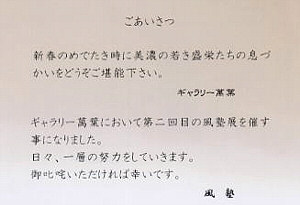 ごあいさつ
新春のめでたき時に美濃の若き盛栄たちの息づ
かいをどうぞご堪能下さい。
ギャラリー萬葉
ギャラリー萬葉において第二回目の風塾展を催す
事になりました。
日々、一層の努力をしていきます。
御叱咤いただければ幸いです。
風塾